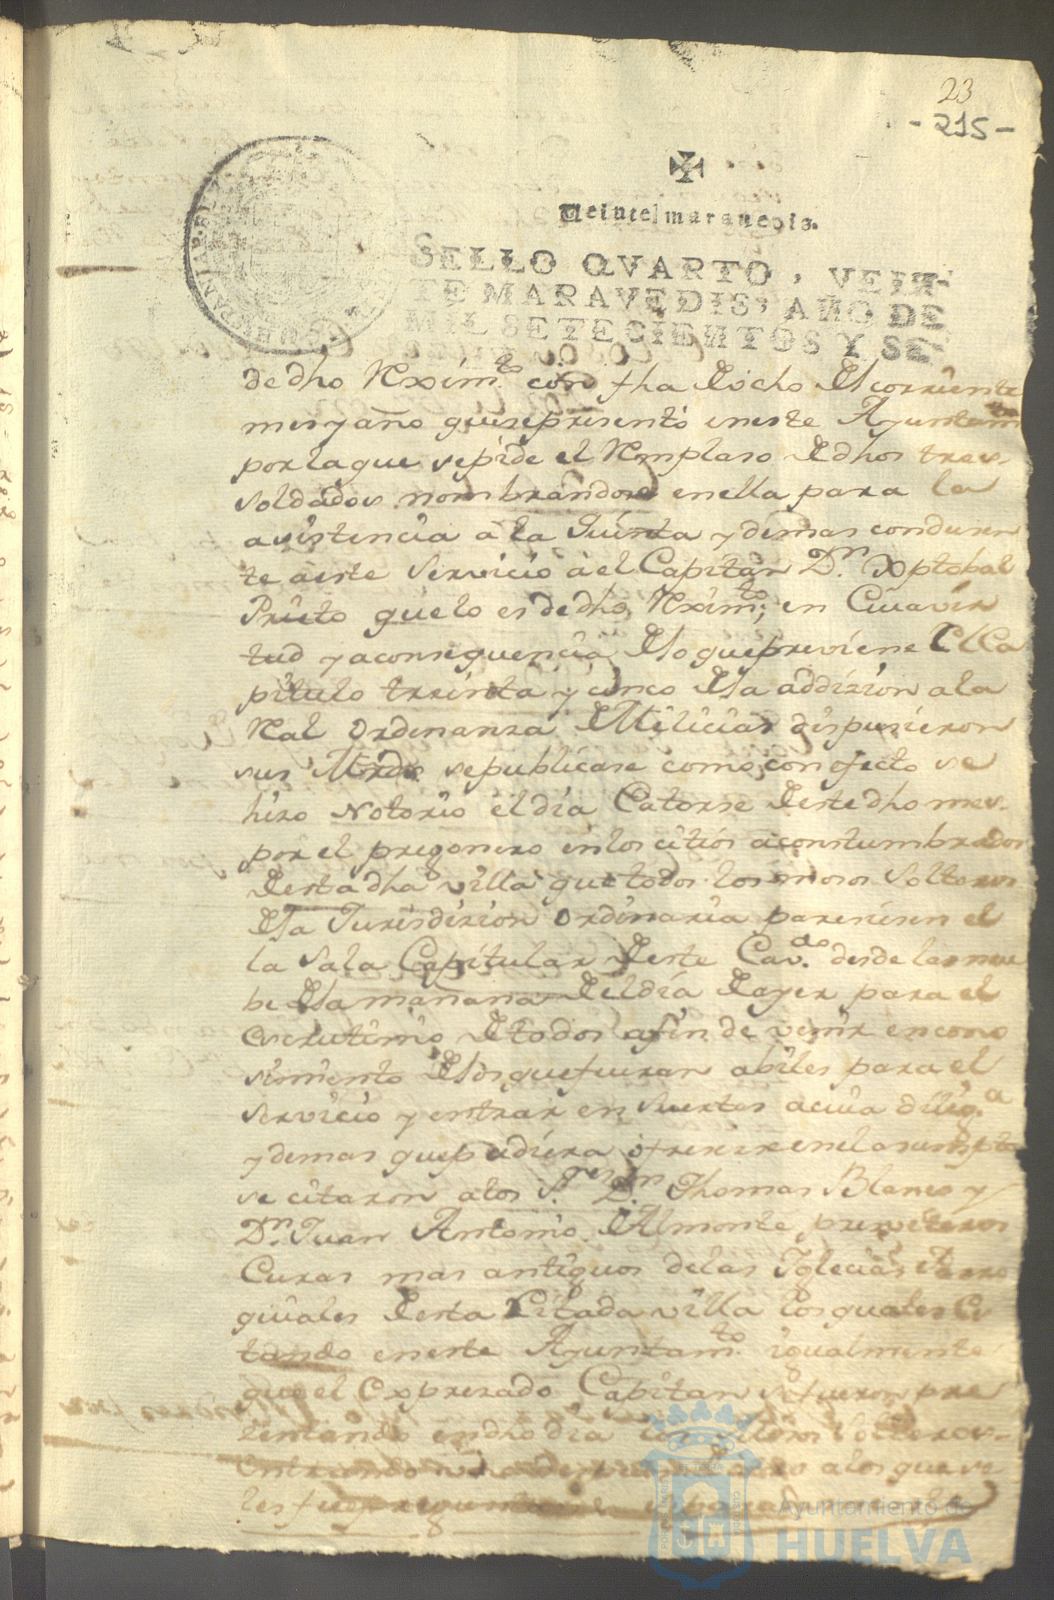 23
- 215 -
Veinte maravedis.
SELLO QVARTO, VEIN-
TE MARAVEDIS, AÑO DE
MIL SETECIENTOS Y SE-
de dho Rxim.to con fha de ocho del corriente
mes y año que se presentó en este Ayuntam.to
por la que se pide el Remplaso de dhos tres
soldados nombrandose en ella para la
asistencia a la Quinta y demas condusen
te a este Servicio a el Capitan D.n Xptobal
Prieto que lo es de dho Rxim.to; en Cuia vir
tud y a consequencia de lo que previene el Ca
pitulo treinta y cinco de la addizion a la
Real Ordenanza de Milicias dispusieron
sus Mrds se publicase como con efecto se
hizo Notorio el dia Catorse de este dho mes
por el pregonero en los citios acostumbrados
de esta dha villa que todos los mosos Solteros
de la Jurisdizion Ordinaria paresiesen el
la Sala Capitular de este Cav.do desde las nue
be de la mañana del dia de ayer para el
escrutinio de todos a fin de venir en cono
simiento de los que fueran abiles para el
servicio y entrar en Suertes a cuia dilig.a
y demas que pudiera ofrecerse en el asumpto
se citaron a los S.res D.n Thomas Blanco y
D.n Juan Antonio de Almonte presviteros
Curas mas antiguos de las Iglecias Parro
quiales de esta Citada villa los quales Es
tando en este Ayuntam.to igualmente
que el Expresado Capitan se fueron pre
zentando en dho dia los Mosos Solteros
Entrando uno despues de otro a los que se
les fue preguntando
Ayuntamiento de
HUELVA